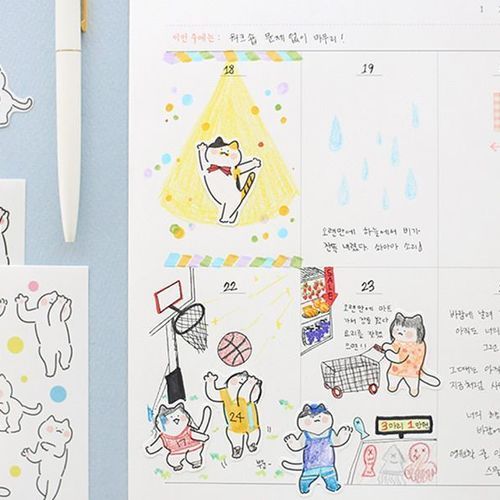 1
이번 주에는 : 워크숍 문제 없이 마무리!
18
19
오랜만에 하늘에서 비가
잔뜩 내렸다. 쏴아아 소리!
22
23
SALE
오랜만에 마트
가서 장을 봤다
요리를 잘했
으면!!
24
3마리 1만원
바람에 날려
아직도 너의
그런
그대에도 아직
지금처럼 사
너의
바람에